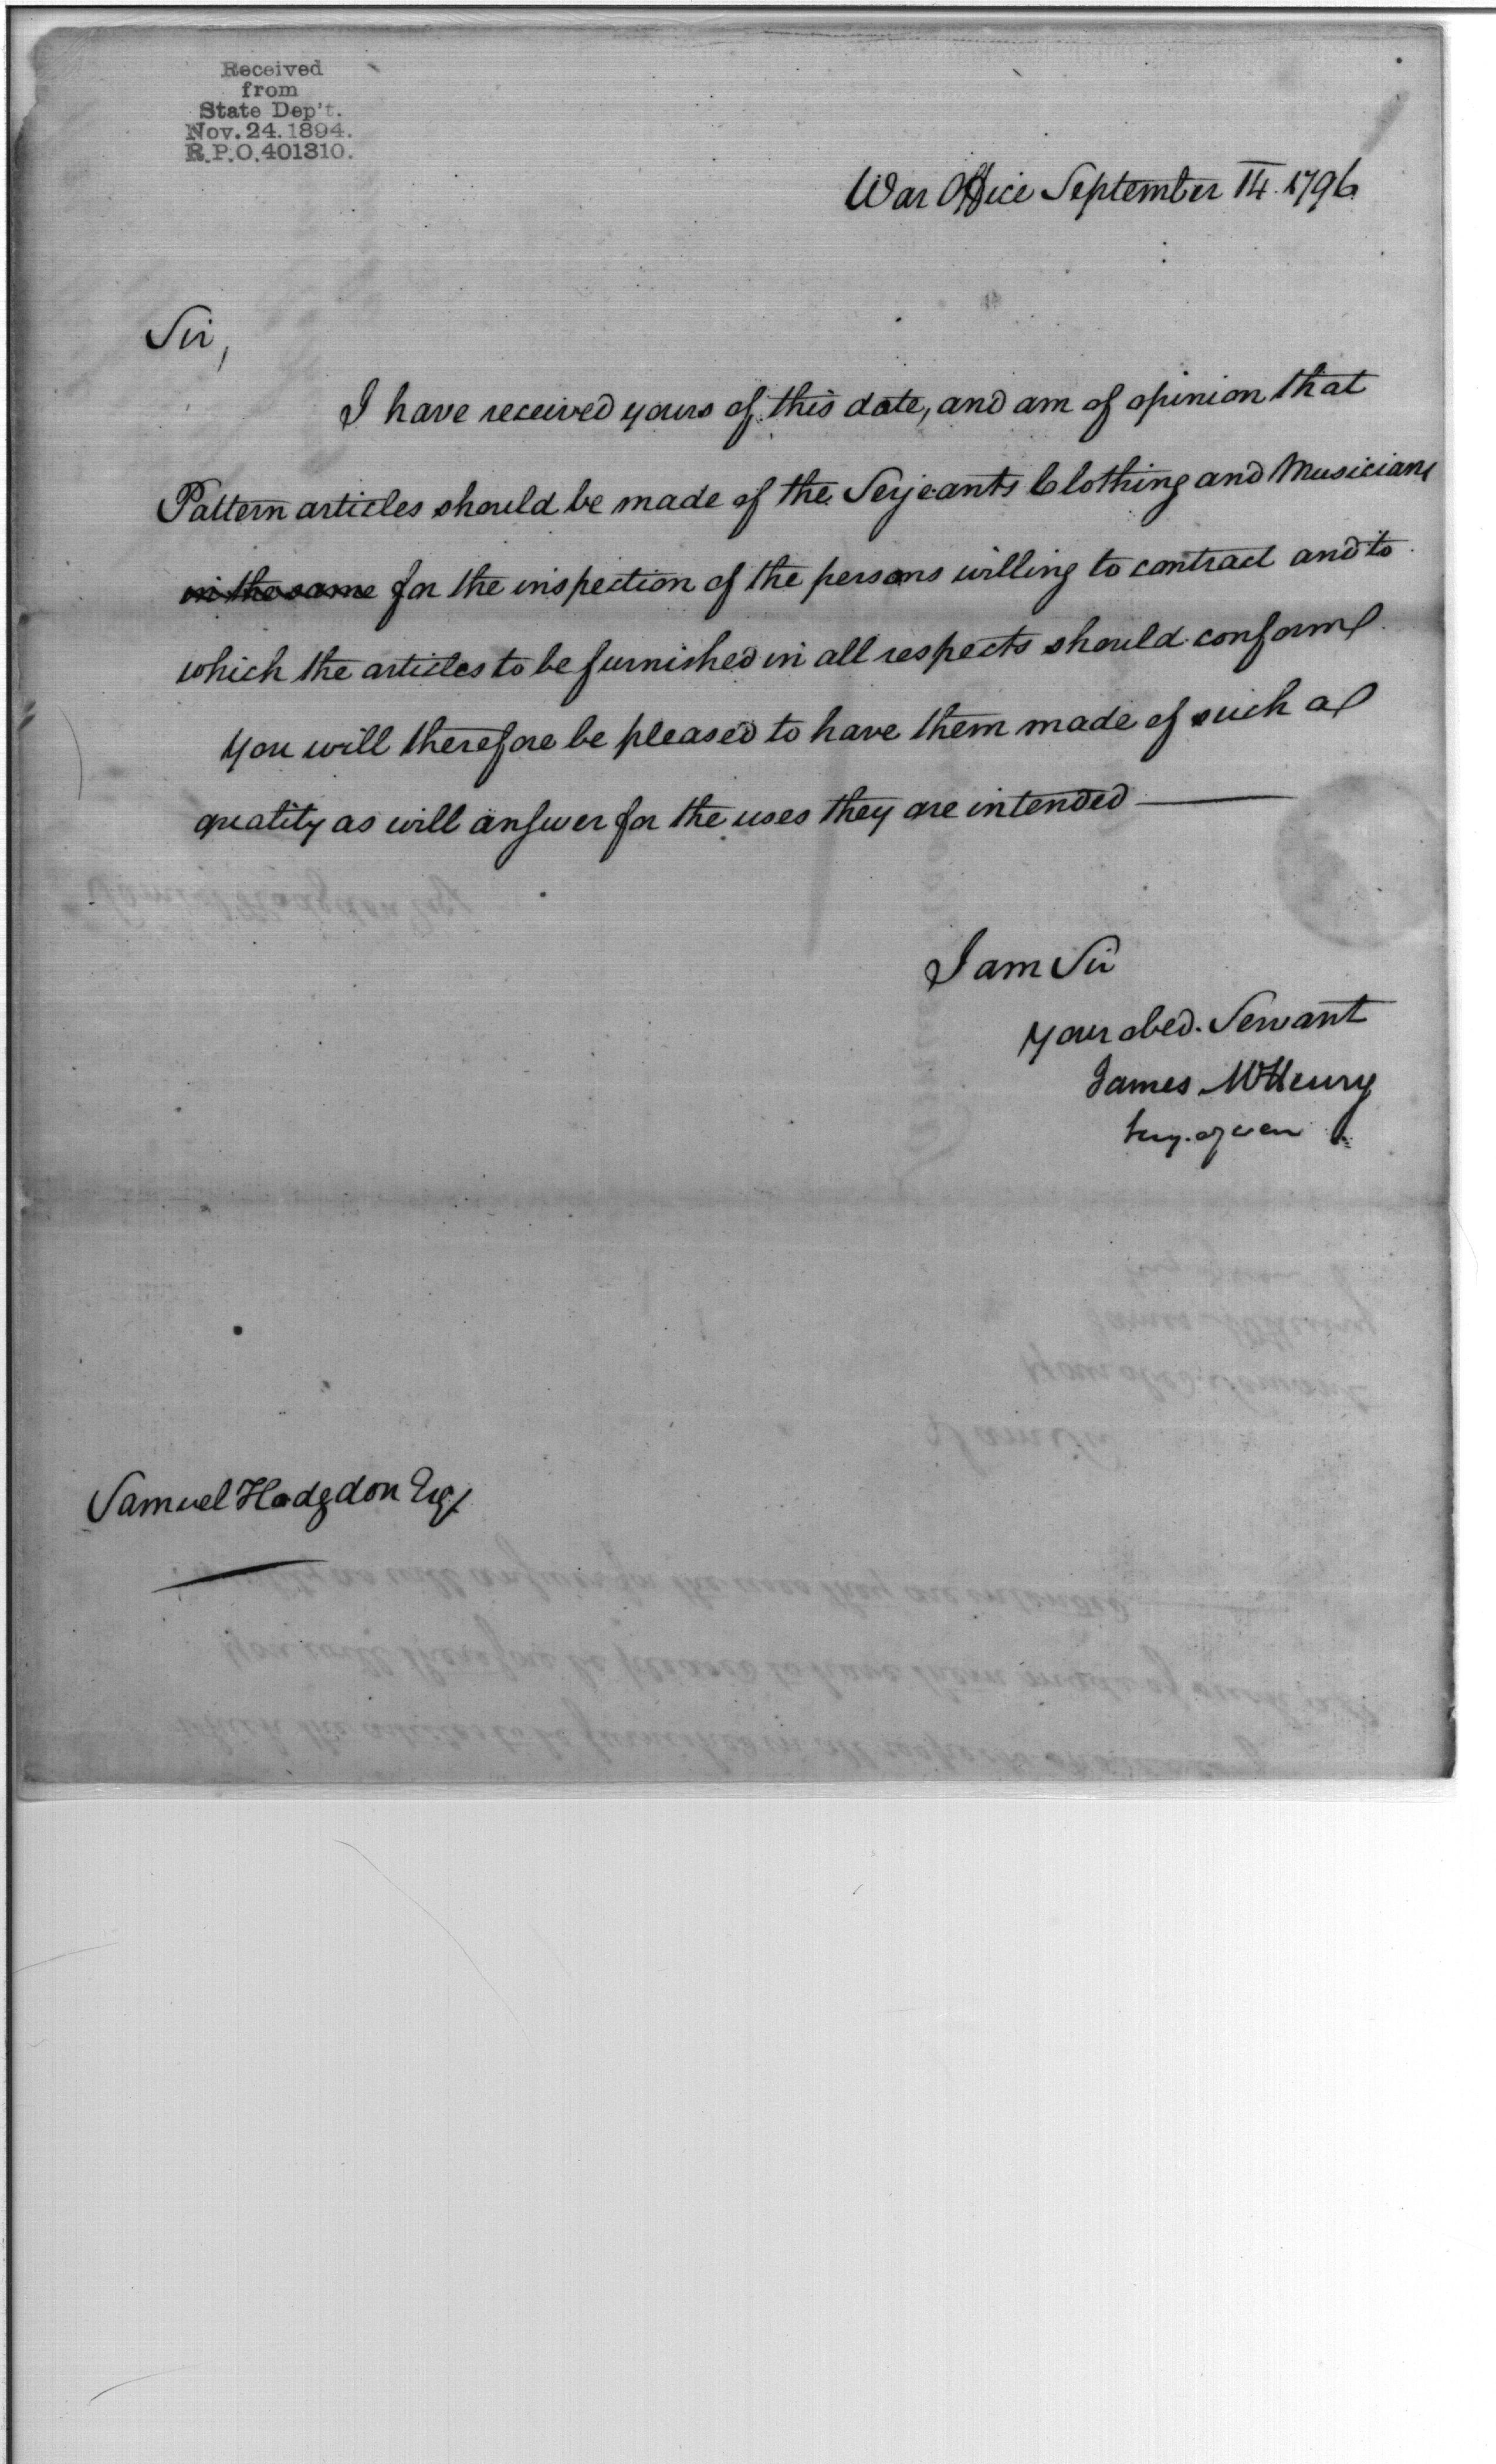 Received
from
State Dep't.
Nov. 24. 1894.
R.P.O. 401310.
War Office September 14. 1796
Sir,
I have received yours of this date, and am of opinion that
Pattern articles should be made of the Serjeants Clothing and Musicians
in the same for the inspection of the persons willing to contract and to
which the articles to be furnished in all respects should conform
You will therefore be pleased to have them made of such a
quality as will answer for the uses they are intended
I am Sir
your obed. Servant
James McHenry
Secy. of war
Samuel Hodgdon Esq